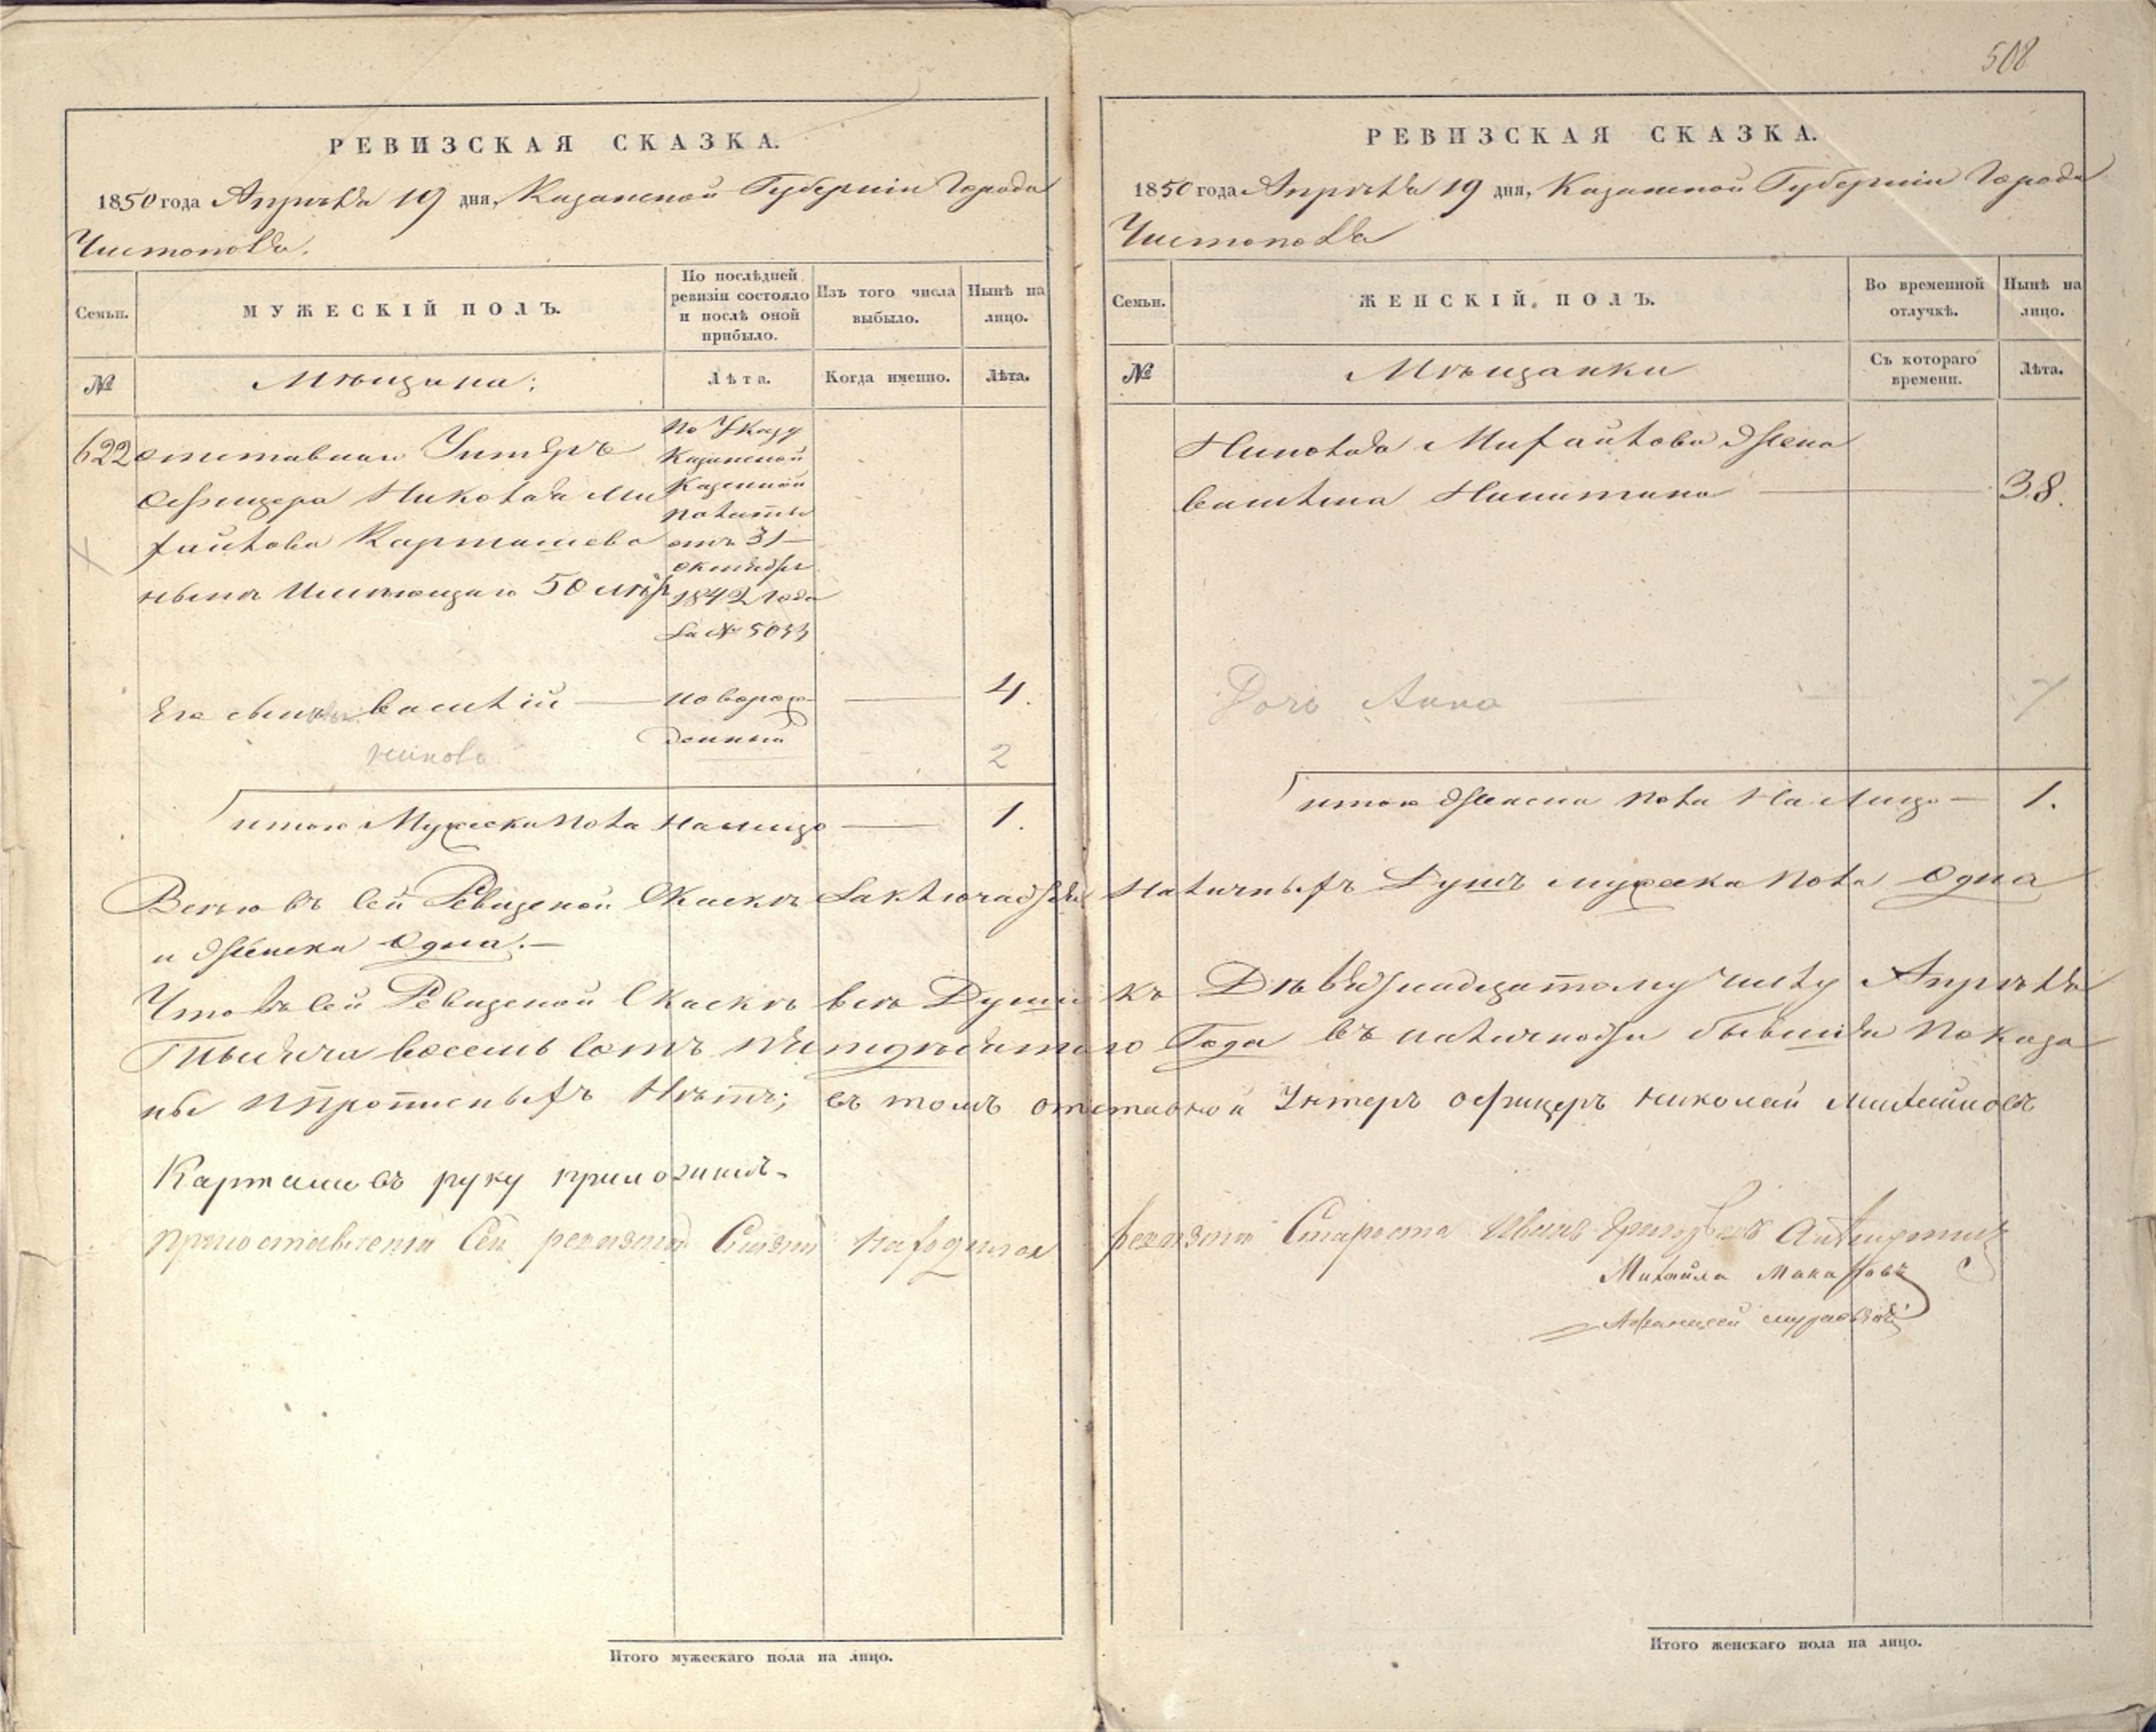 508
РЕВИЗСКАЯ СКАЗКА.
1850 года Апрѣля 19 дня, Казанской Губерніи Города
Чистополя.
Семьи.
МУЖЕСКІЙ ПОЛЪ.
По послѣдней ревизіи состояло и послѣ оной прибыло.
Изъ того числа выбыло.
Нынѣ на лицо.
№
Мѣщана:
Лѣта.
Когда именно.
Лѣта.
622 отставнаи Унтеръ
Офицера Николая Ми
хайлова Карташева
нынѣ Имѣющаго 50 лѣтъ
по Указу
Казанской
Казенной
палаты
отъ 31
октября
1842 года
за № 5033
Его сынъ Василій — новорож
денный — 4.
Никола 2
итого Мужеска пола На лицо — 1.
РЕВИЗСКАЯ СКАЗКА.
1850 года Апрѣля 19 дня, Казанской Губерніи Города
Чистополя
Семьи.
ЖЕНСКІЙ ПОЛЪ.
Во временной отлучкѣ.
Нынѣ на лицо.
№
Мѣщанки
Съ котораго времени.
Лѣта.
Николая Михайлова Жена
Василиса Никитина — 38.
Дочь Анна — 7
итого Женска пола На Лицо — 1.
Всего въ Сей Ревизской Скаскѣ Заключается Наличныхъ Душъ мужеска пола Одна
и Женска Одна.—
Что въ Сей Ревизской Скаскѣ всѣ Души къ Девятнадцатому числу Апрѣля
Тысяча восемь сотъ пятидесятаго Года въ наличности бывшія показа
ны и прописныхъ Нѣтъ; въ томъ отставной Унтеръ офицеръ николай михайловъ
Карташовъ руку приложилъ.
При составленіи Сей ревизкой Скаски находился ревизкой Староста Иванъ
Михаила Макаровъ
Афанасей
Итого мужескаго пола на лицо.
Итого женскаго пола на лицо.